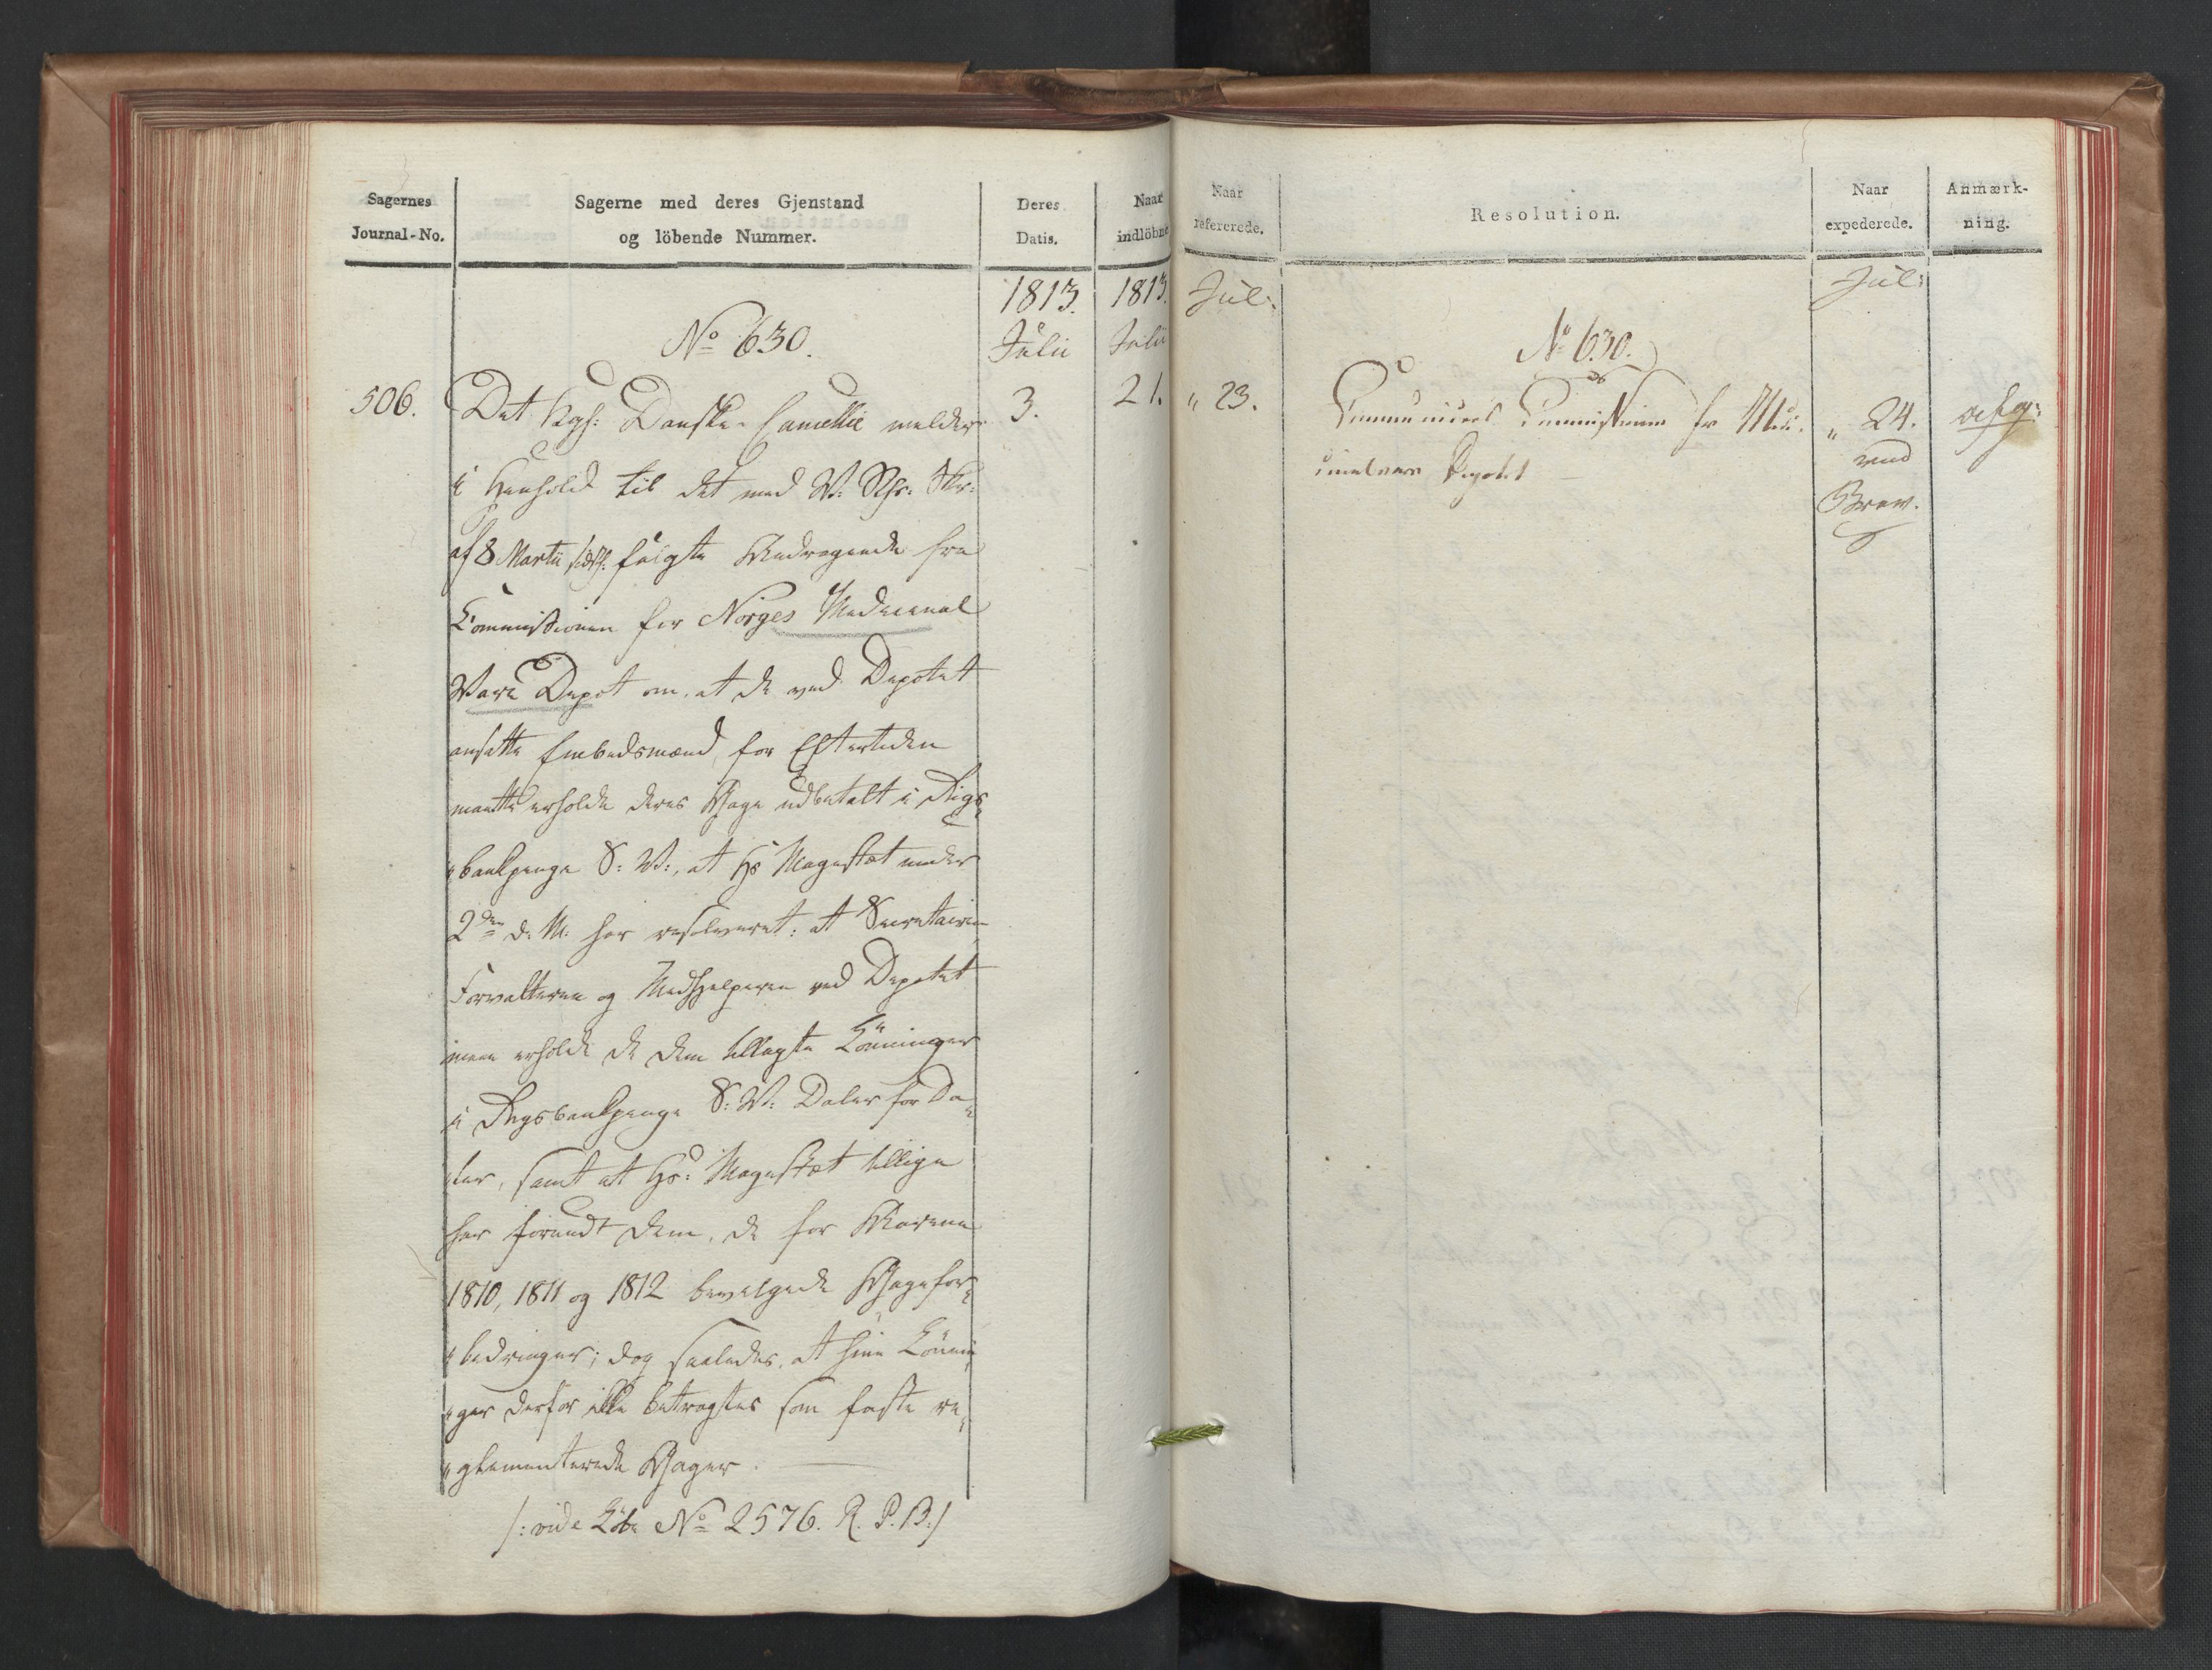 Sagernes
Journal-No.
Sagerne med deres Gjenstand
og löbende Nummer.
Deres
Datis.
Naar
indlöbne
1813.
Julii
1813.
Julii
No 630.
506.
3.
21.
Det Kgl: Danske Cancellie melder
i Henhold til det med V: Skr:
af 8 Martii sidstl: fulgte Andragende fra
Commissionen for Norges Medicinal
Vare Depot om, at de ved Depotet
ansatte Embedsmænd for Eftertiden
maatte erholde deres Gage udbetalt i Rigs
bankpenge S: V:, at Hs Magestæt under
2den d: M: har resolveret: at Secretairen
Forvalteren og Medhjelperen ved Depotet
maae erholde de dem tillagte Lönninger
i Rigsbankpenge S: V: Daler for Da
ler, samt at Hs: Magestæt tillige
har forundt dem, de for Aarene
1810, 1811 og 1812 bevilgede Gagefor
bedringer; dog saaledes, at hine Lönnin
ger derfor ikke betragtes som faste re
glementerede Gager.
/: vide Löbe No 2576. R. P. B:/
Naar
refererede.
Resolution.
Naar
expederede.
Anmærk-
ning.
Jul:
Jul:
No 630.
" 23.
Communiceres Commissionen for Medi
cinalvare Depotet
" 24.
ved
Brev.